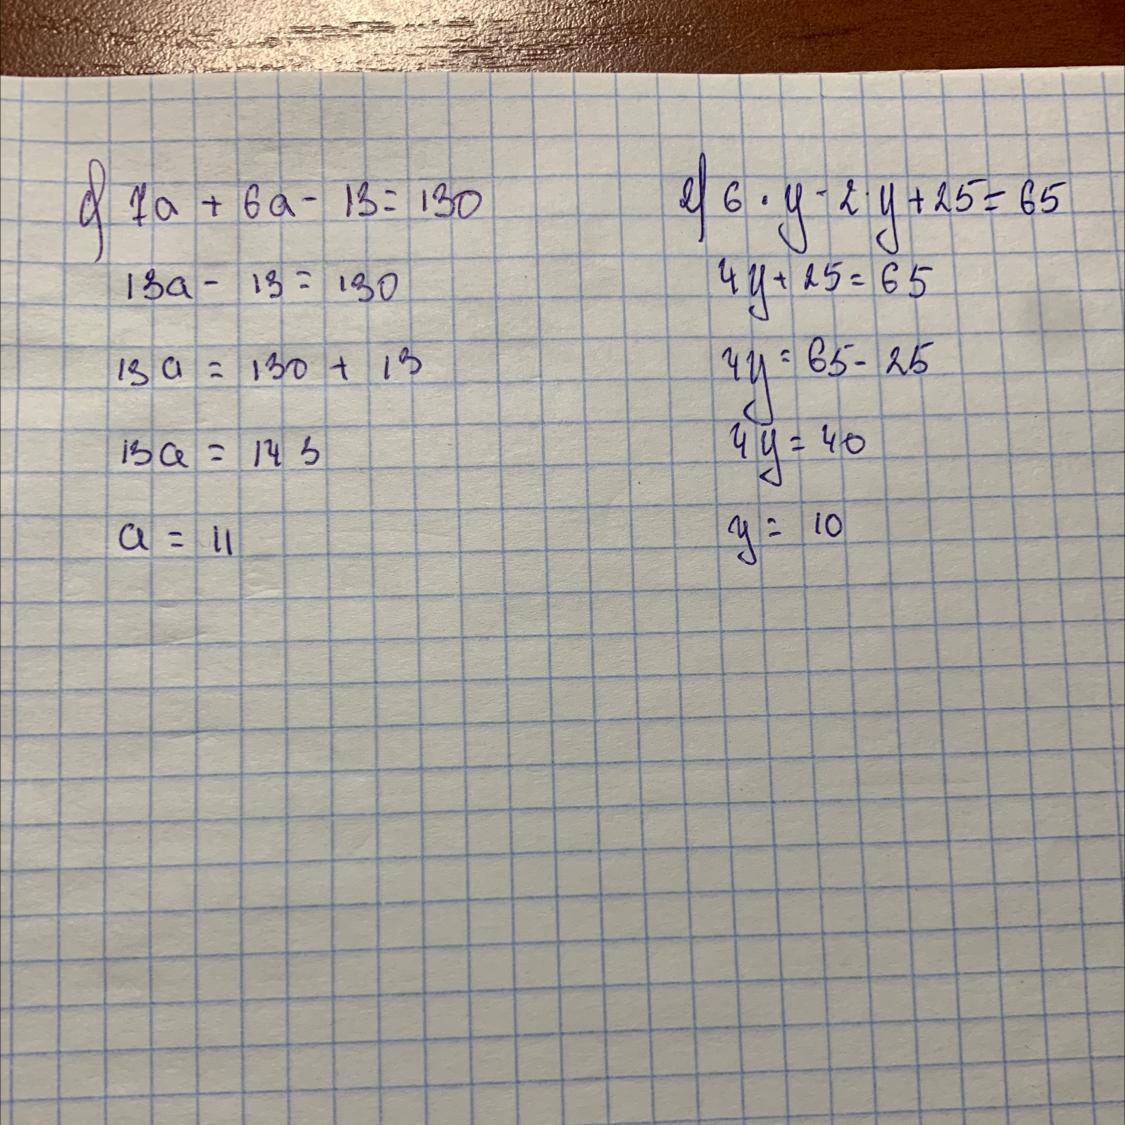 д) 7a + 6a - 13 = 130
13a - 13 = 130
13a = 130 + 13
13a = 143
a = 11
е) 6 · y - 2 · y + 25 = 65
4y + 25 = 65
4y = 65 - 25
4y = 40
y = 10